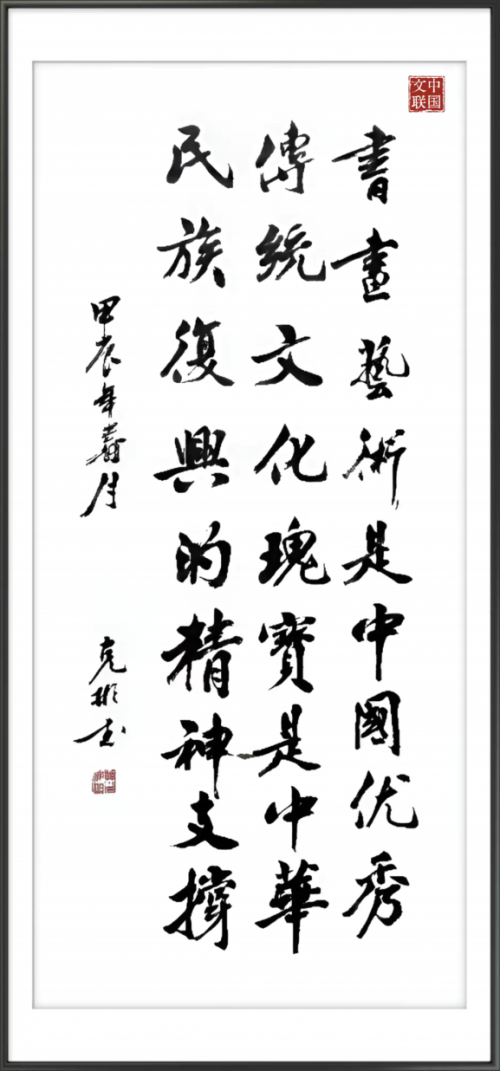 書畫藝術是中國优秀
傳統文化瑰寶是中華
民族復興的精神支撑
甲辰年春月
克彬书
中国文联